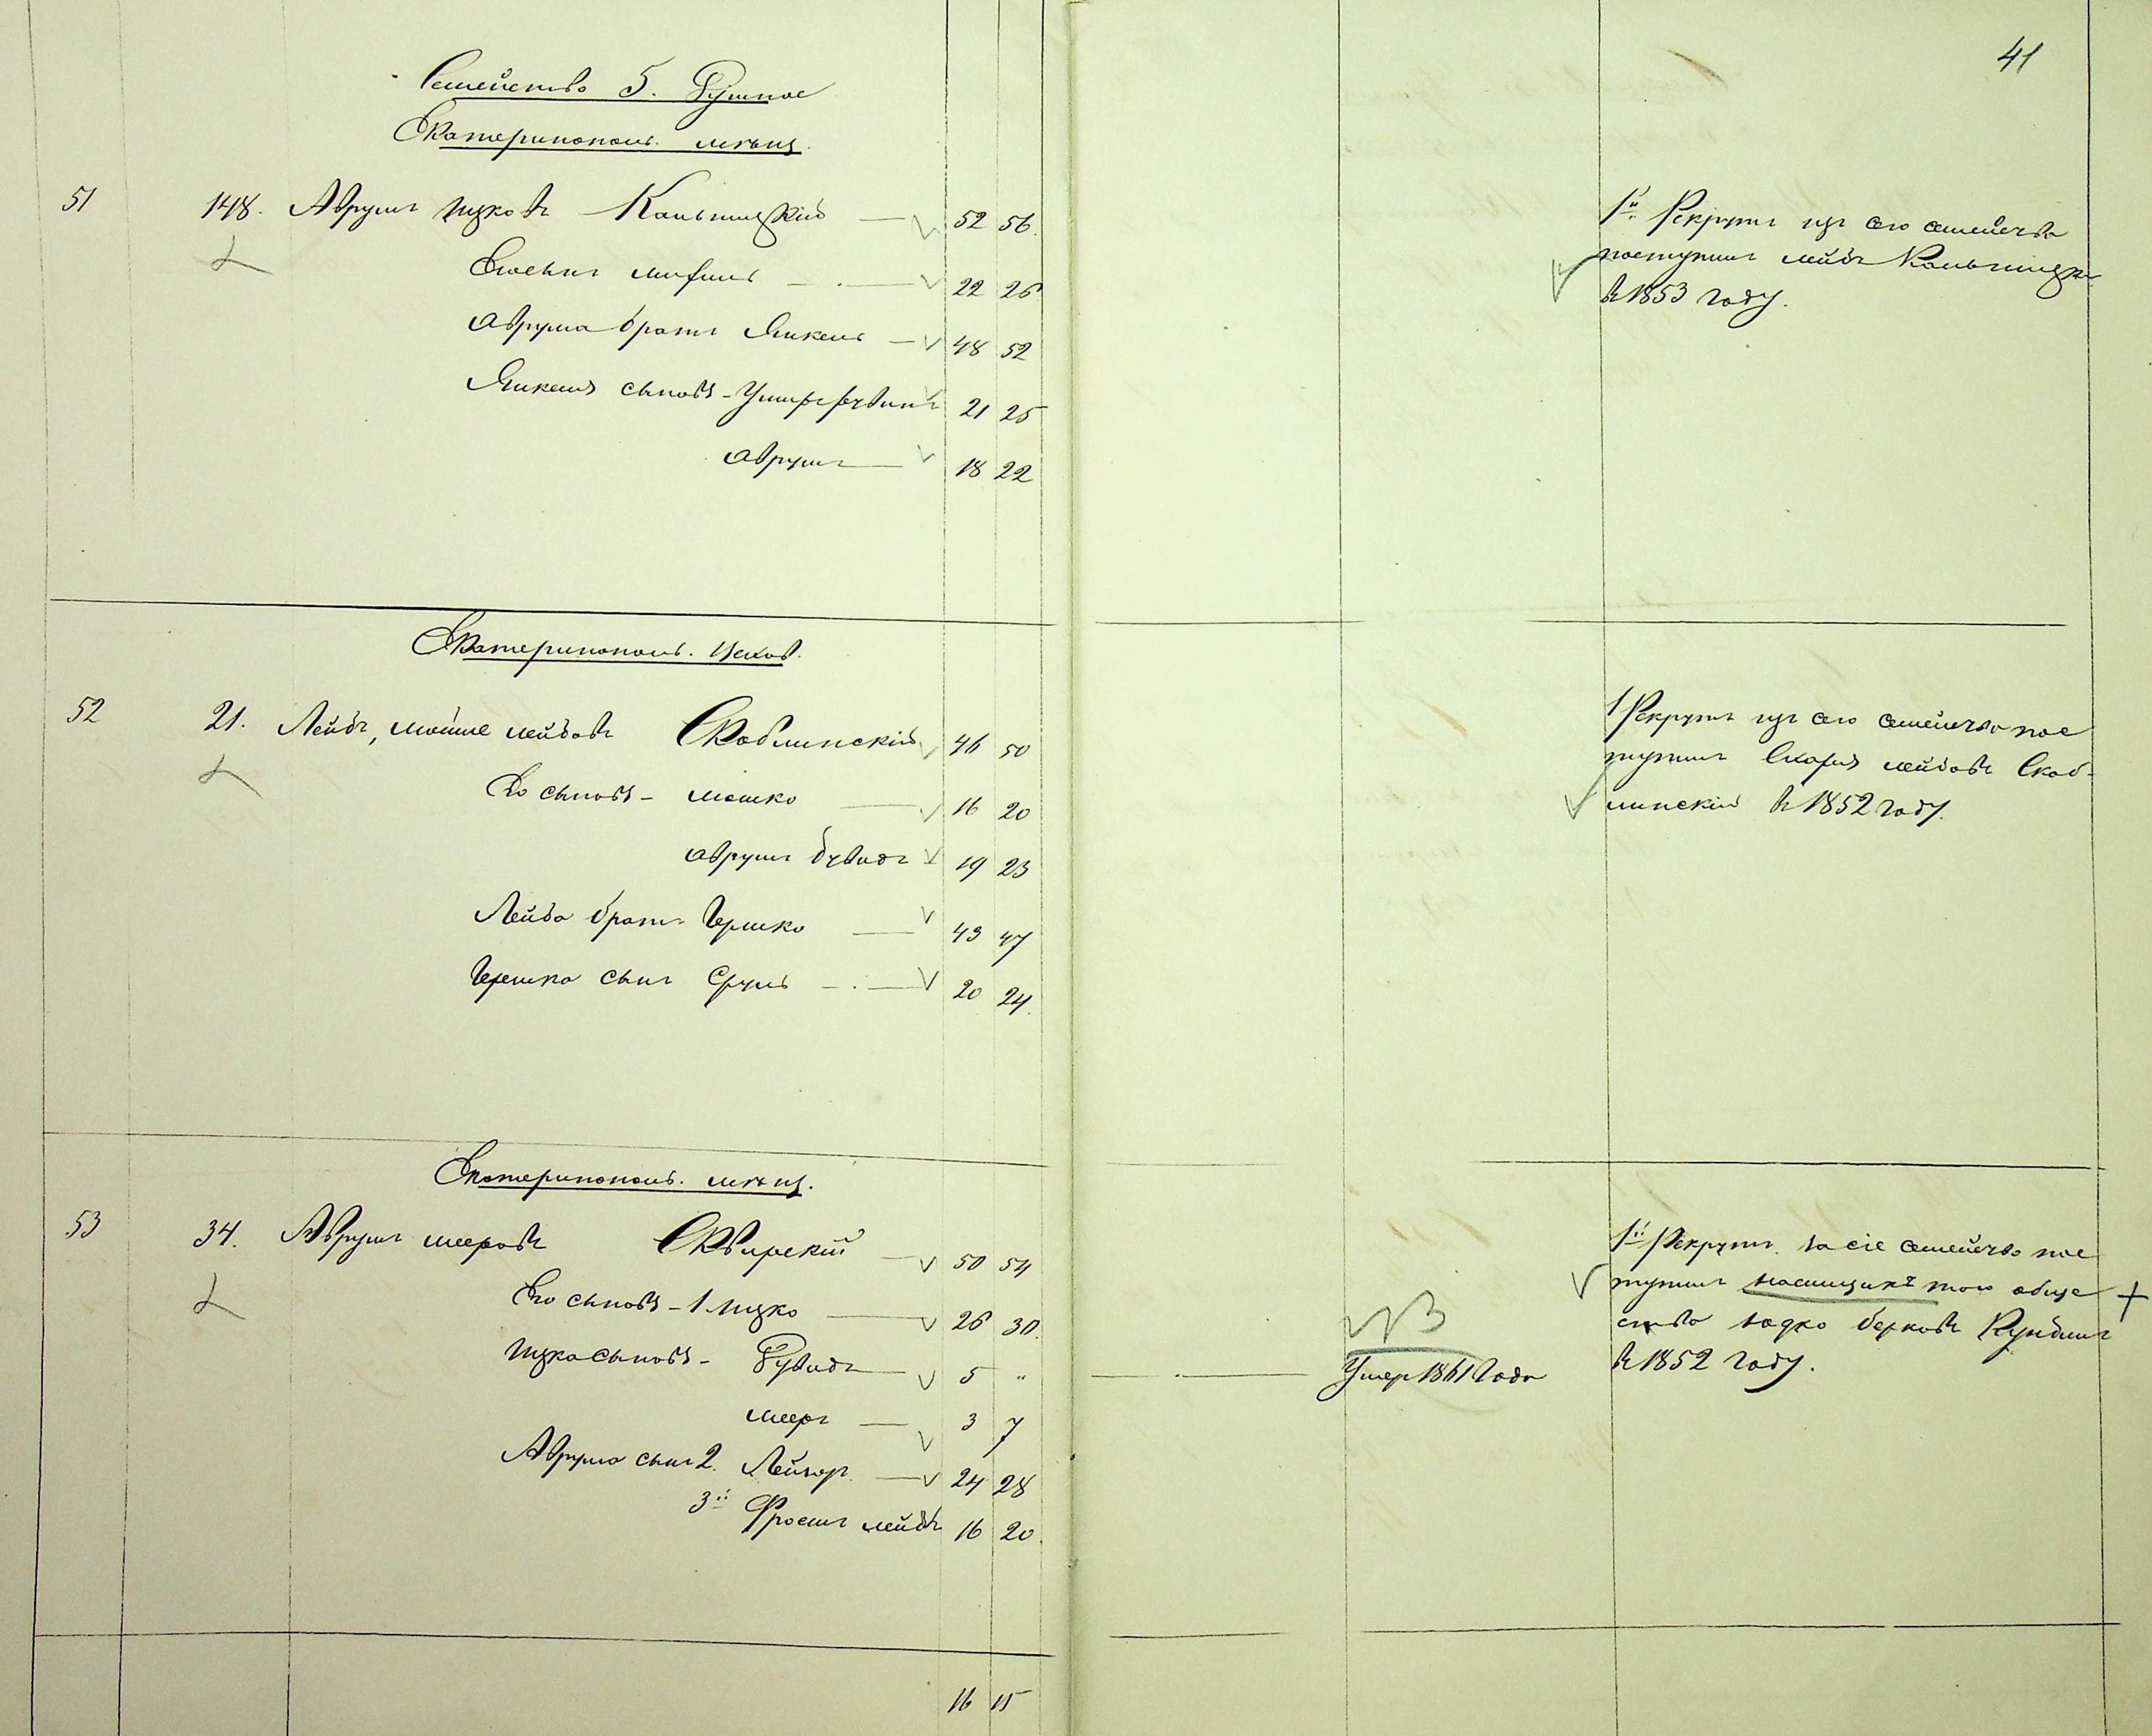 41
Семейство 5. Душное
Екатеринополь. мѣщ.
51 148. Аврумъ Ицковъ Кальницкій 52 56.
Евоснт 22 26
Аврума братъ Янкель 48 52
Янкеля сыновья - Ушеръ 21 25
Аврумъ 18 22
1й Рекрутъ изъ сего семейства
поступилъ Лейбъ Кальницкій
въ 1853 году.
Екатеринополь. Цехов.
52 21. Лейбъ, Мойше Лейбовъ Скоблинскій 46 50
Его сыновья - Мошко 16 20
Аврумъ Дувидъ 19 23
Лейба братъ Гершко 43 47
Гершка сынъ Сруль 20 24.
1 Рекрутъ изъ сего семейства пос
тупилъ Лейбовъ Скоб-
линскій въ 1852 году.
Екатеринополь. мѣщ.
53 34. Аврумъ Мееровъ Сквирскій 50 54
Его сыновья - 1 Ицко 26 30.
Ицка сыновья - Дувидъ 5 "
Умер 1861 года
Мееръ 3 7
Аврума сынъ 2. Лейзоръ 24 28
3й Фроимъ Лейбъ 16 20.
1й Рекрутъ за сіе семейство пос
тупилъ наемщикъ того обще
ства Берковъ
въ 1852 году.
16 15